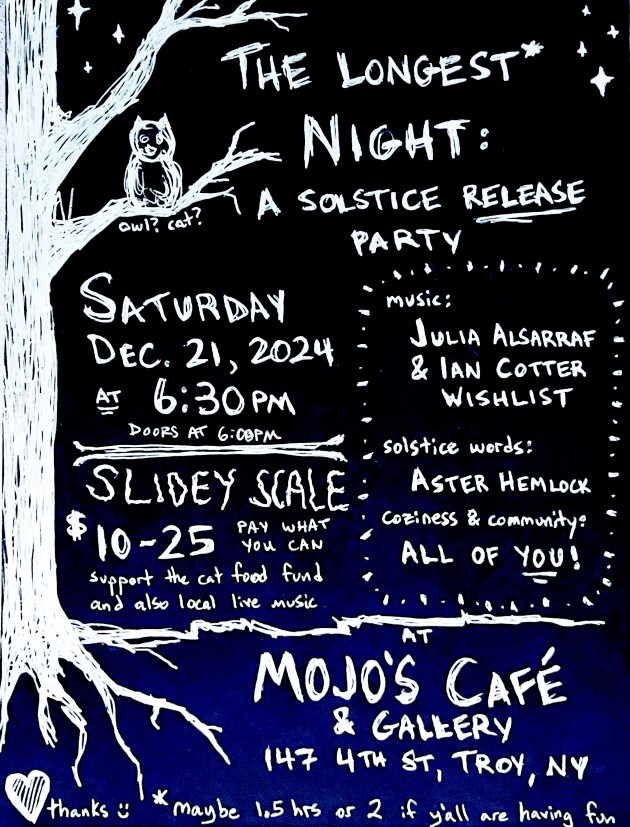 THE LONGEST*
NIGHT:
A SOLSTICE RELEASE
PARTY
owl? cat?
SATURDAY
DEC. 21, 2024
AT 6:30 PM
DOORS AT 6:00PM
SLIDEY SCALE
$10-25 PAY WHAT
YOU CAN
support the cat food fund
and also local live music
music:
JULIA ALSARRAF
& IAN COTTER
WISHLIST
solstice words:
ASTER HEMLOCK
coziness & community:
ALL OF YOU!
AT
MOJO'S CAFÉ
& GALLERY
147 4TH ST, TROY, NY
thanks :) *maybe 1.5 hrs or 2 if y'all are having fun